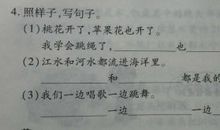 4.照样子,写句子。
(1)桃花开了,苹果花也开了。
我学会跳绳了,________也________
(2)江水和河水都流进海洋里。
________和________都是我的
(3)我们一边唱歌一边跳舞。
________一边________一边________